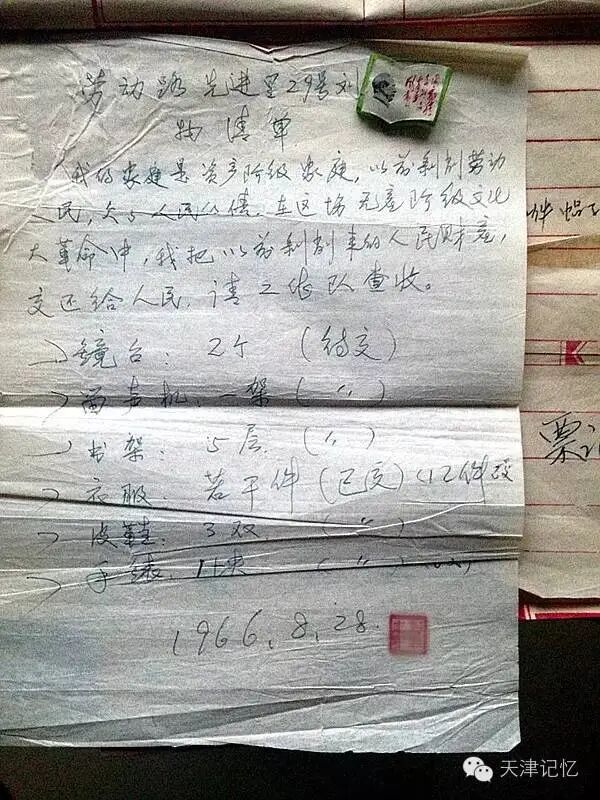 劳动路先进里29号刘
物清单
我的家庭是资产阶级家庭，以前剥削劳动
民，欠了人民的债。在这场无产阶级文化
大革命中，我把以前剥削来的人民财产，
交还给人民。请工作队查收。
镜台：2个（待交）
留声机：一架（〃）
书架：5层（〃）
衣服：若干件（已交）（12件
皮鞋：3双（〃）
手表：1块（〃）
1966.8.28.
件
票
天津记忆